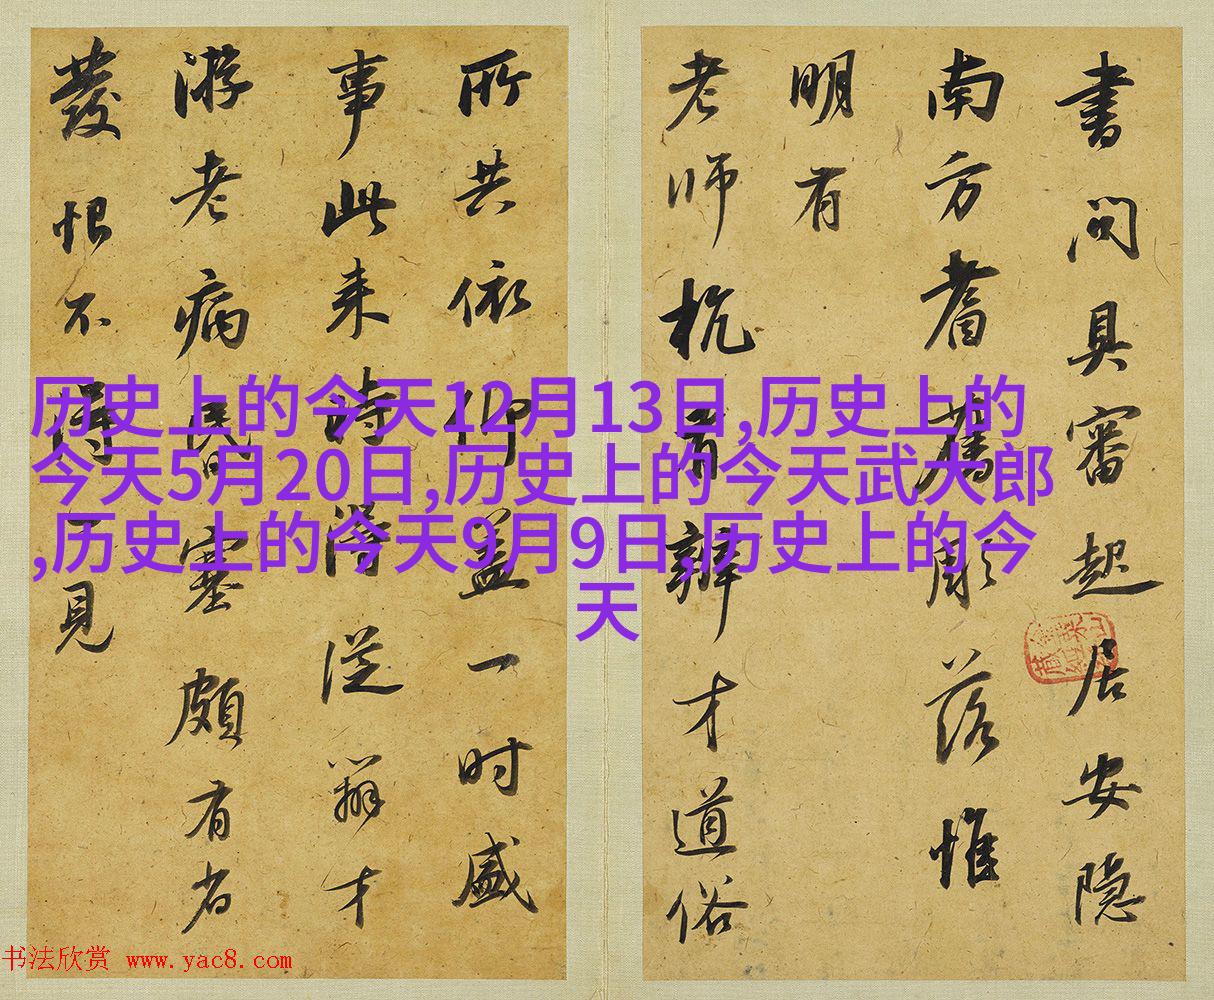 書問具審起居安隱
南方耆舊彫落惟
明有
老師杭有辯才道俗
所共依仰盖一時盛
事此来時得従辯才
游老病昏塞頗有省
發恨不得一見
历史上的今天12月13日,历史上的
今天5月20日,历史上的今天武大郎
,历史上的今天9月9日,历史上的今
天
书法欣赏 www.yac8.com